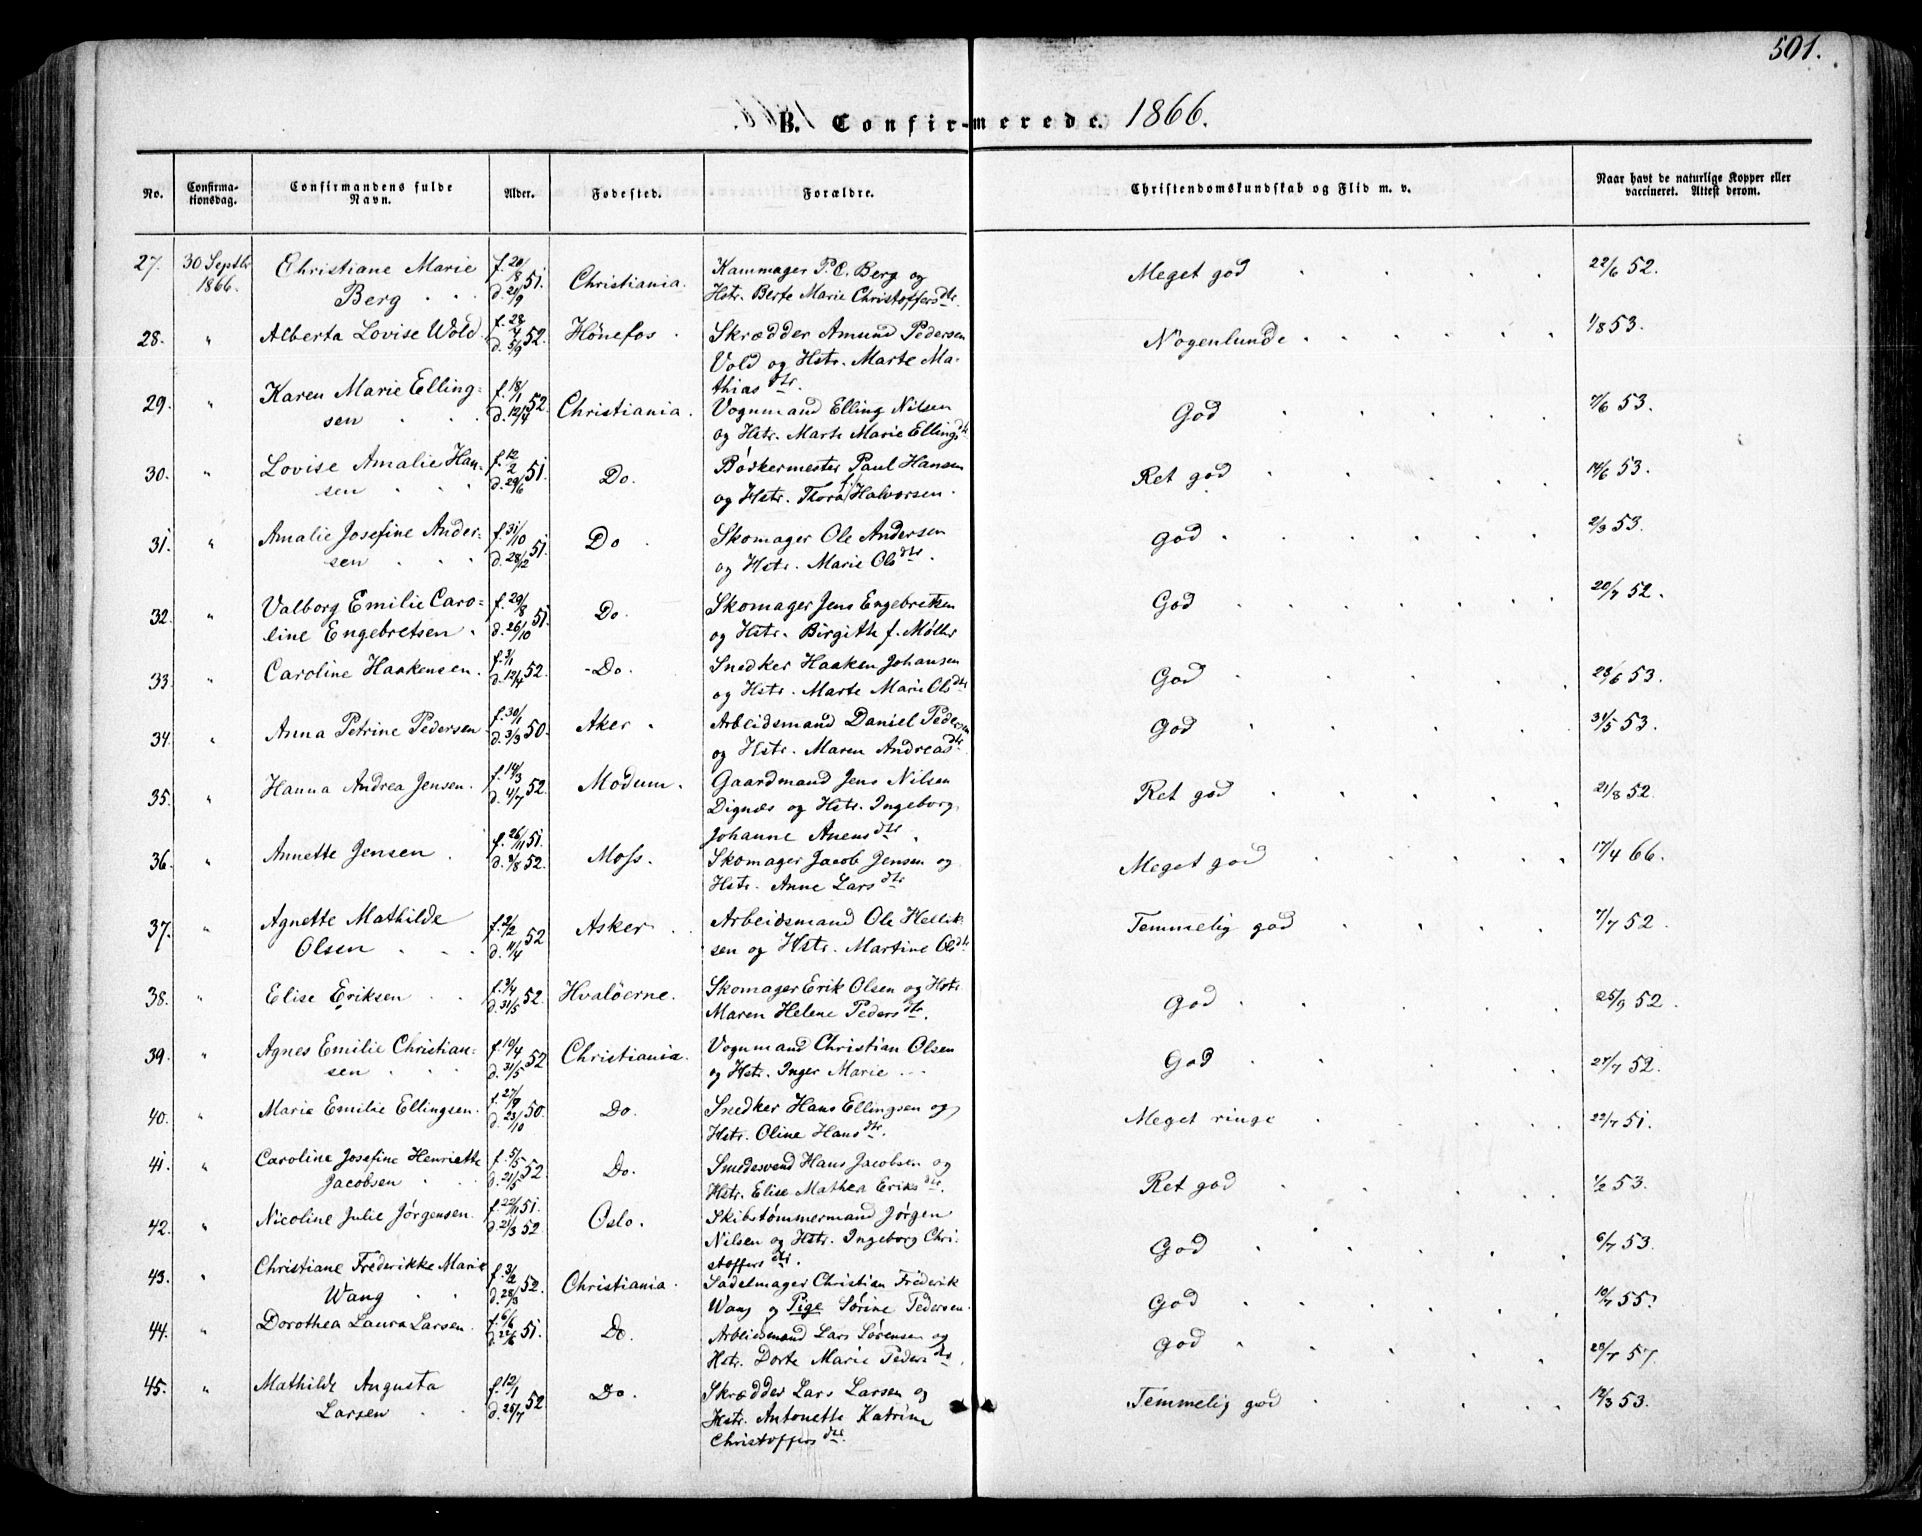 501.
B. Confirmerede. 1866.
No. Confirmationsdag. Confirmandens fulde Navn. Alder. Fødested. Forældre. Christendomskundskab og Flid m. v. Naar havt de naturlige Kopper eller vaccineret. Attest derom.
27. 30 Septbr Christiane Marie f. 20/8 51. Christiania. Kammager P. C. Berg og Meget god 22/6 52.
1866. Berg d. 21/9 Hstr. Berte Marie Christoffersdtr.
28. " Alberta Lovise Wold f. 28/7 52. Hönefos Skrædder Amund Pedersen Nogenlunde 1/8 53.
d. 5/9 Vold og Hstr. Marte Ma-
thiasdtr.
29. " Karen Marie Elling- f. 18/1 52. Christiania. Vognmand Elling Nilsen God 7/6 53.
sen d. 12/4 og Hstr. Marte Marie Ellingsdtr
30. " Lovise Amalie Han- f. 12/2 51. Do. Bödkermester Paul Hansen Ret god 14/6 53.
sen d. 29/6 og Hstr. Thora f. Halvorsen.
31. " Amalie Josefine Ander- f. 31/10 51. Do Skomager Ole Andersen God 2/3 53.
sen d. 28/12 og Hstr. Marie Olsdtr.
32. " Valborg Emilie Caro- f. 29/8 51. Do. Skomager Jens Engebretsen God 20/7 52.
line Engebretsen. d. 26/10 og Hstr. Birgith f. Møller
33. " Caroline Haakensen. f. 3/1 52. Do. Snedker Haaken Johansen God 28/6 53.
d. 12/4 og Hstr. Marte Marie Olsdtr
34. " Anna Petrine Pedersen f. 30/1 50. Aker Arbeidsmand Daniel Pedersen God 31/5 53.
d. 3/3 og Hstr. Maren Andreasdtr.
35. " Hanna Andrea Jensen. f. 14/3 52. Modum. Gaardmand Jens Nilsen Ret god 21/8 52.
d. 4/7 Dignæs og Hstr. Ingeborg
Johanne Anensdtr.
36. " Annette Jensen f. 26/11 51. Moss. Skomager Jacob Jensen og Meget god 17/4 66.
d. /8 52. Hstr. Anne Larsdtr
37. " Agnette Mathilde f. 2/2 52 Asker Arbeidsmand Ole Hellik- Temmelig god 7/7 52.
Olsen d. 11/4 sen og Hstr. Martine Olsdtr.
38. " Elise Eriksen f. 3/4 52. Hvalöerne. Skomager Erik Olsen og Hstr. God 25/9 52.
d. 31/5 Maren Helene Pedersdtr.
39. " Agnes Emilie Christian- f. 10/4 52 Christiania. Vognmand Christian Olsen God 27/7 52.
sen d. 31/5 og Hstr. Inger Marie
40. " Marie Emilie Ellingsen. f. 27/9 50. Do. Snedker Hans Ellingsen og Meget ringe 22/7 51.
d. 23/10 Hstr. Oline Hansdtr.
41. " Caroline Josefine Henriette f. 5/5 52 Do. Smedesvend Hans Jacobsen og Ret god 1/2 53.
Jacobsen d. 21/5 Hstr. Elise Mathea Eriksdtr.
42. " Nicoline Julie Jørgensen. f. 22/11 51. Oslo. Skibstømmermand Jørgen God 6/7 53.
d. 21/3 52. Nilsen og Hstr. Ingeborg Chri-
stoffersdtr.
43. " Christiane Frederikke Marie f. 3/2 52. Christiania. Sadelmager Christian Frederik God 10/7 55.
Wang d. 28/3 Wang og Pige Sørine Pedersen.
44. " Dorothea Laura Larsen f. 6/6 51. Do. Arbeidsmand Lars Sørensen og God 28/7 57.
d. 22/6 Hstr. Dorte Marie Pedersdtr.
45. " Mathilde Augusta f. 12/1 52 Do. Skrædder Lars Larsen og Temmelig god 12/3 53.
Larsen d. 25/7 Hstr. Antonette Katrine
Christoffersdtr.